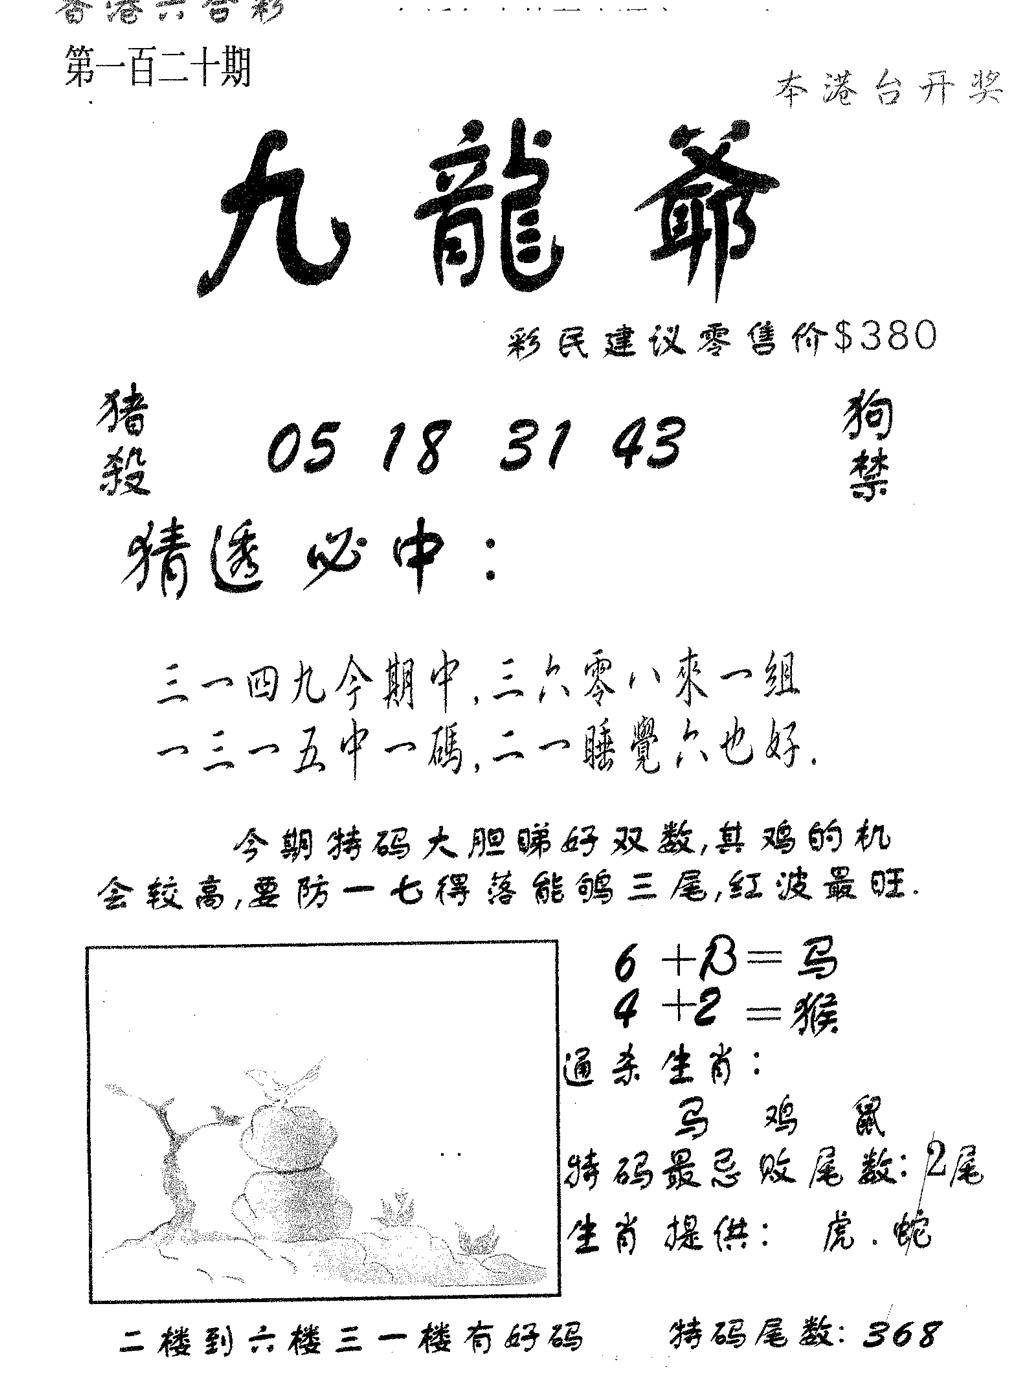 香港六合彩
第一百二十期
本港台开奖
九龍爺
彩民建议零售价$380
猪殺
05 18 31 43
狗禁
猜透必中：
三一四九今期中,三六零八來一組
一三一五中一碼,二一睡覺六也好.
今期特码大胆睇好双数,其鸡的机
会较高,要防一七得落能鸲三尾,红波最旺.
6+13=马
4+2=猴
通杀生肖：
马 鸡 鼠
特码最忌败尾数：2尾
生肖提供： 虎.蛇
二楼到六楼三一楼有好码
特码尾数：368